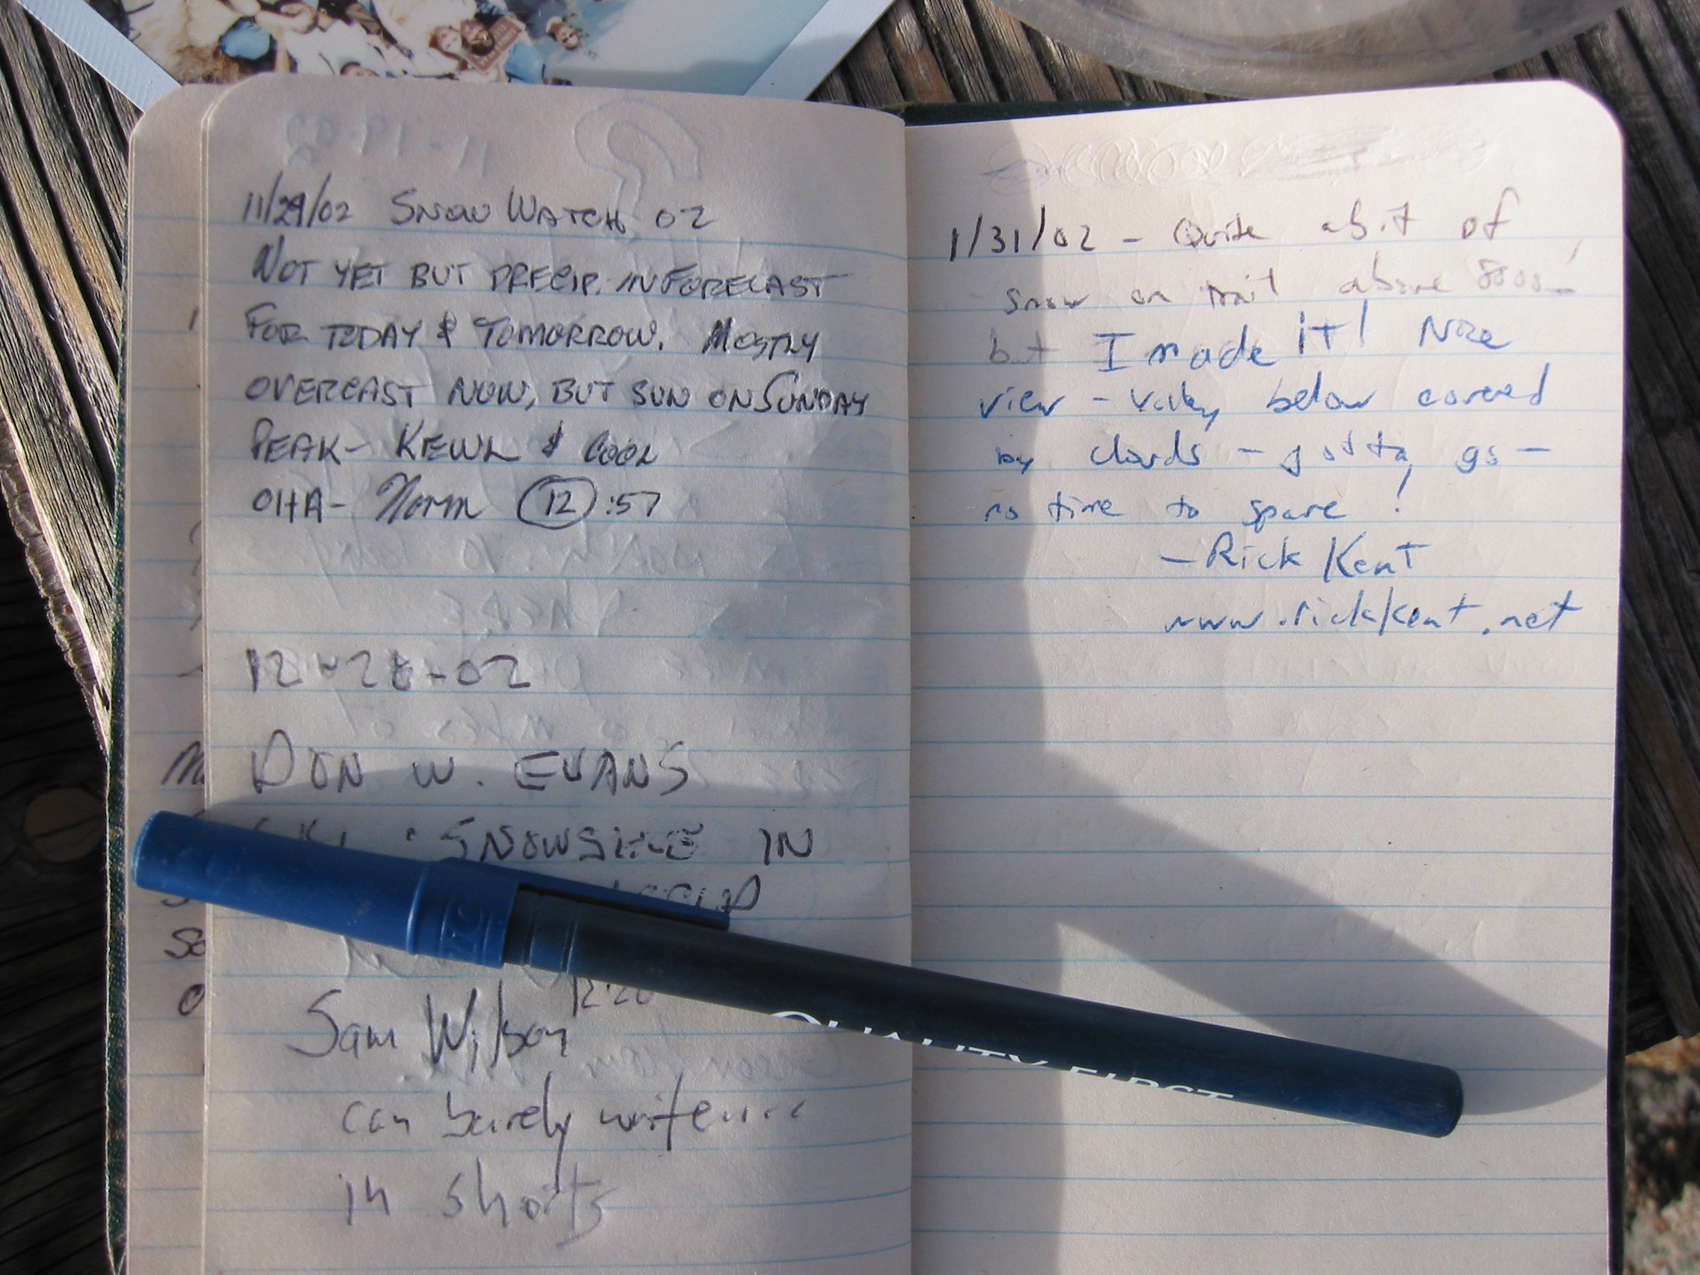 11/29/02 SNOW WATCH 02
NOT YET BUT PRECIP. IN FORECAST
FOR TODAY & TOMORROW. MOSTLY
OVERCAST NOW, BUT SUN ON SUNDAY
PEAK- KEWL & COOL
OHA- Norm 12:57
12-28-02
DON W. EVANS
SNOWSHOE IN
12:20
Sam Wilson
can barely write...
in shorts
1/31/02 - Quite abit of
snow on trail above 8000'
but I made it! Nice
view - valley below covered
by clouds - gotta go -
no time to spare!
- Rick Kent
www.rickkent.net
BIC
QUALITY FIRST